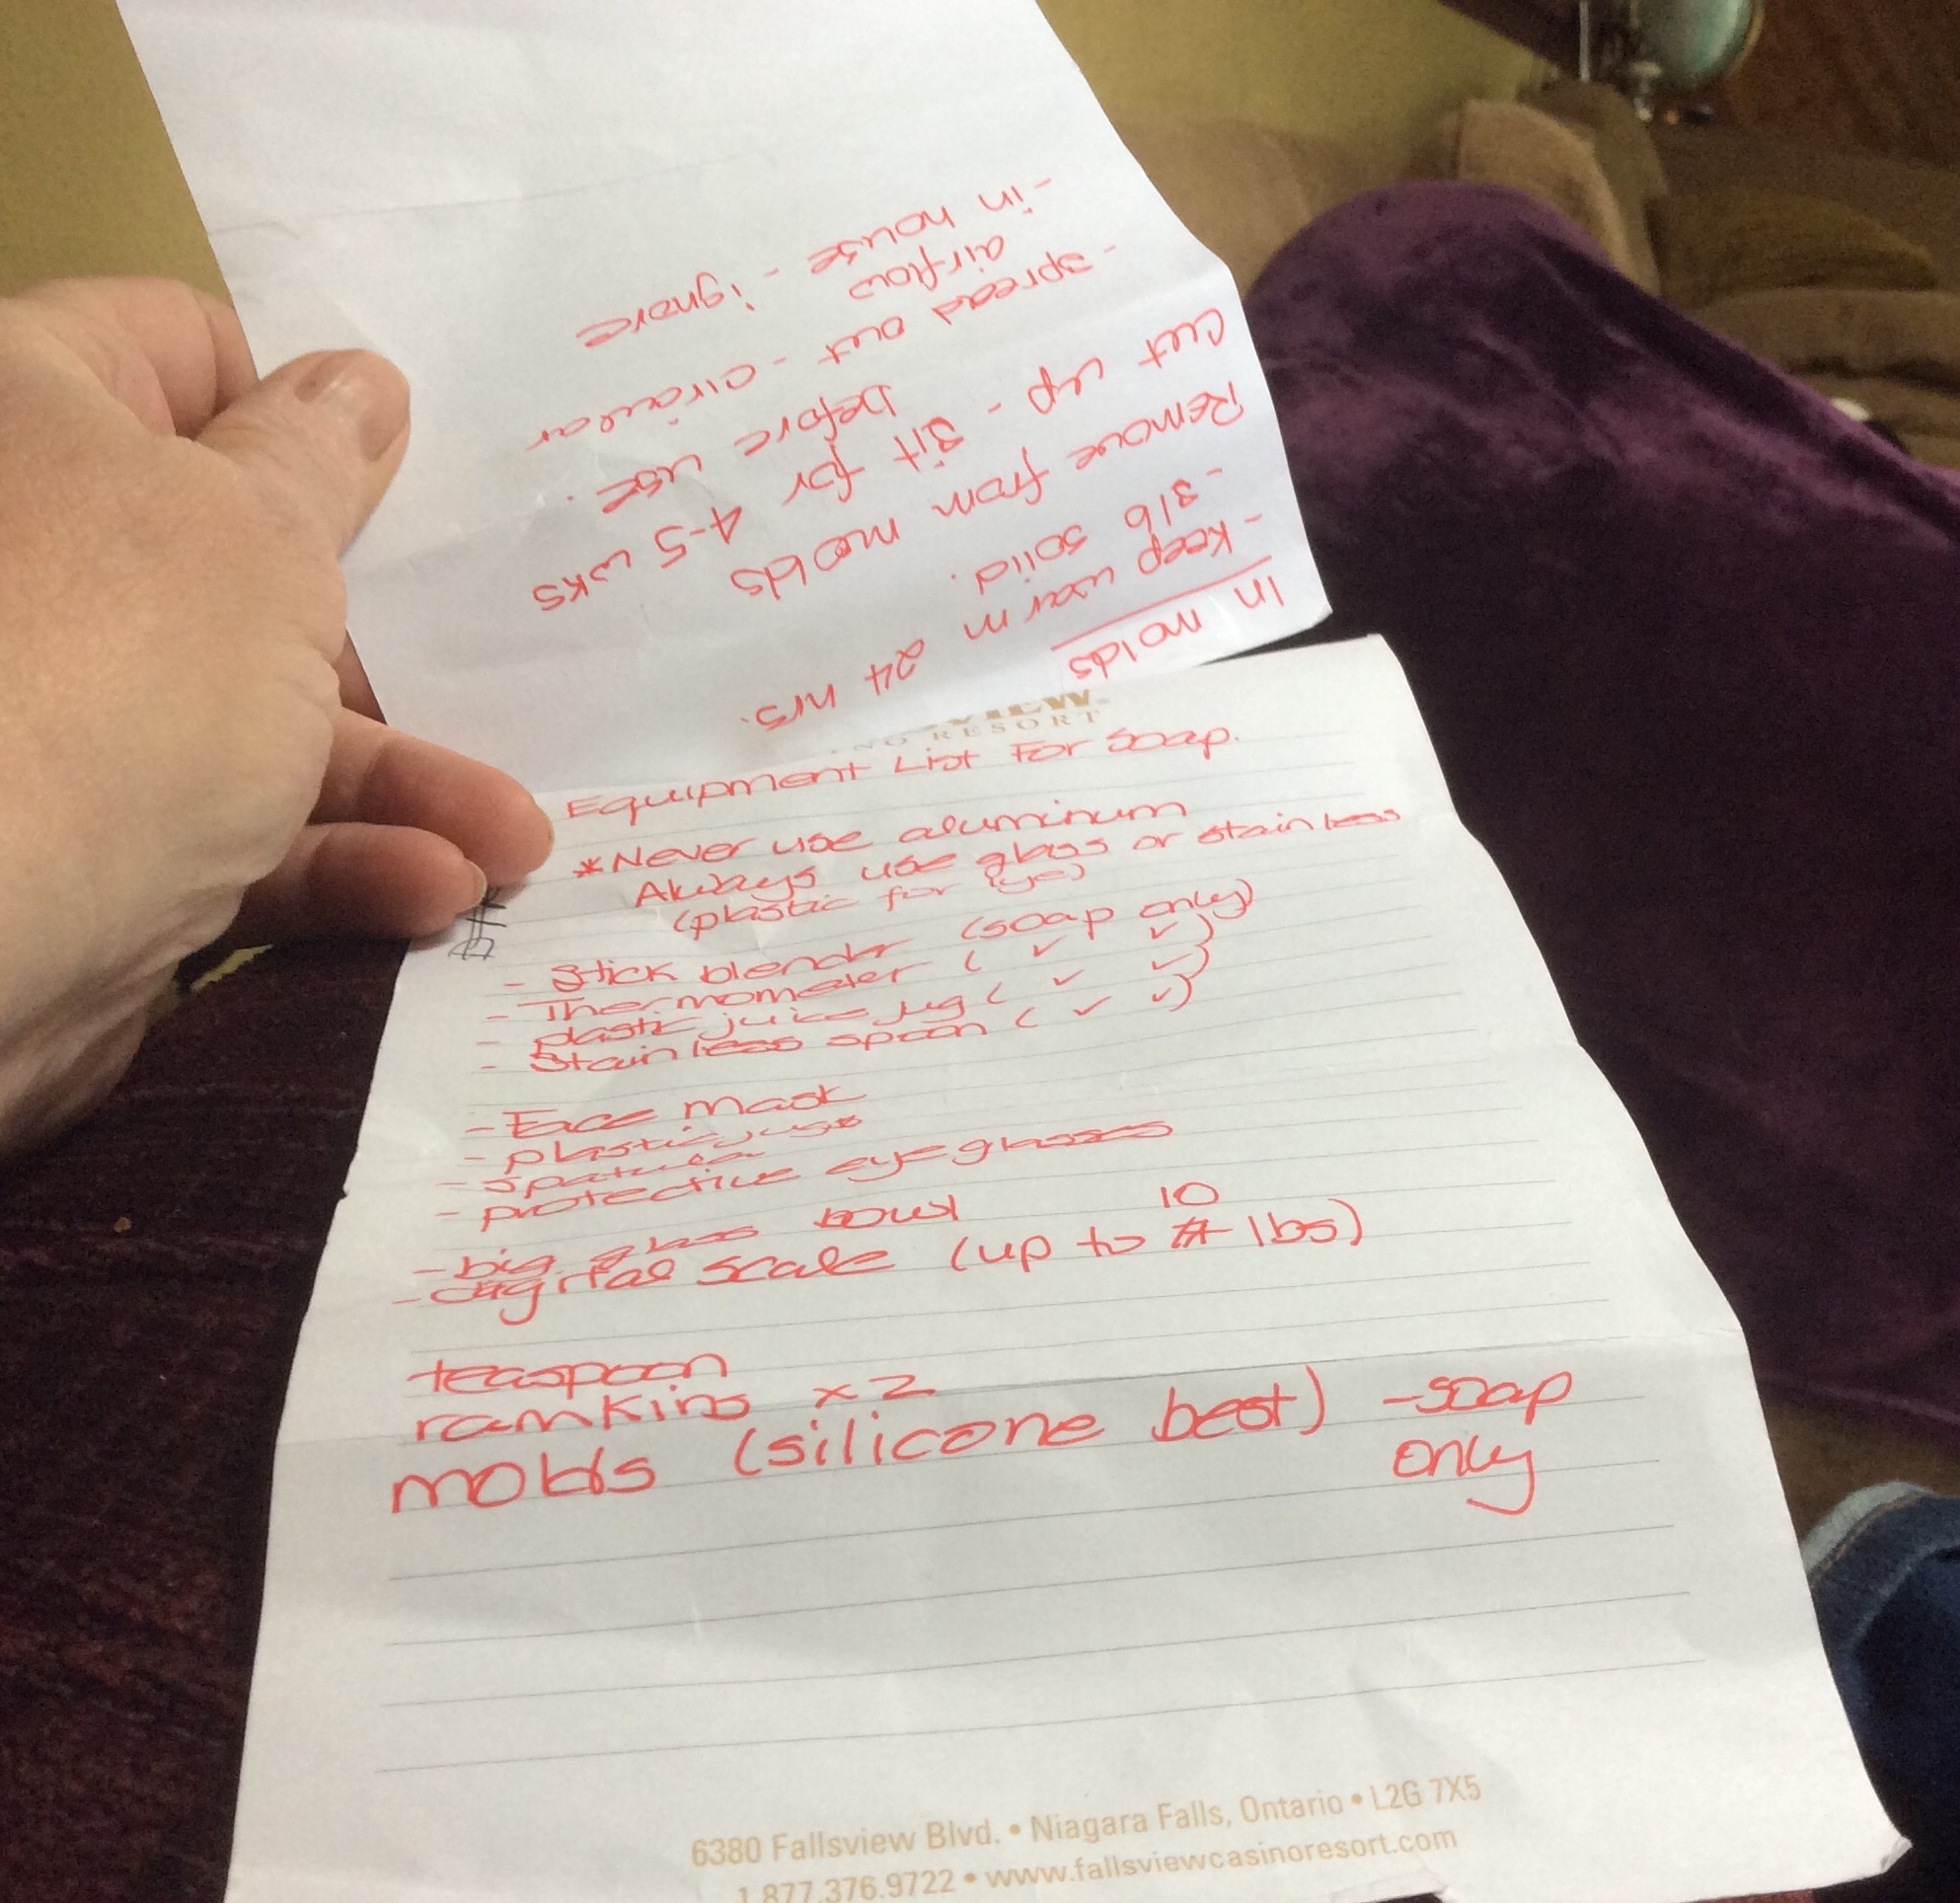 In molds
- Keep warm 24 hrs.
- slb solid.
Remove from molds
cut up - sit for 4-5 wks
before use.
- spread out - circular
airflow
- in house - ignore
RESORT
Equipment List For Soap.
*Never use aluminum
Always use glass or stainless
(plastic for lye)
- Stick blender (soap only)
- Thermometer ( ✓ ✓ )
- plastic juice jug ( ✓ ✓ )
- Stainless spoon ( ✓ ✓ )
- Face mask
- plastic jugs
- spatula
- protective eyeglasses
- big glass bowl
- digital scale (up to 10 lbs)
teaspoon
ramkins x2
molds (silicone best) - soap
only
6380 Fallsview Blvd. • Niagara Falls, Ontario • L2G 7X5
1.877.376.9722 • www.fallsviewcasinoresort.com